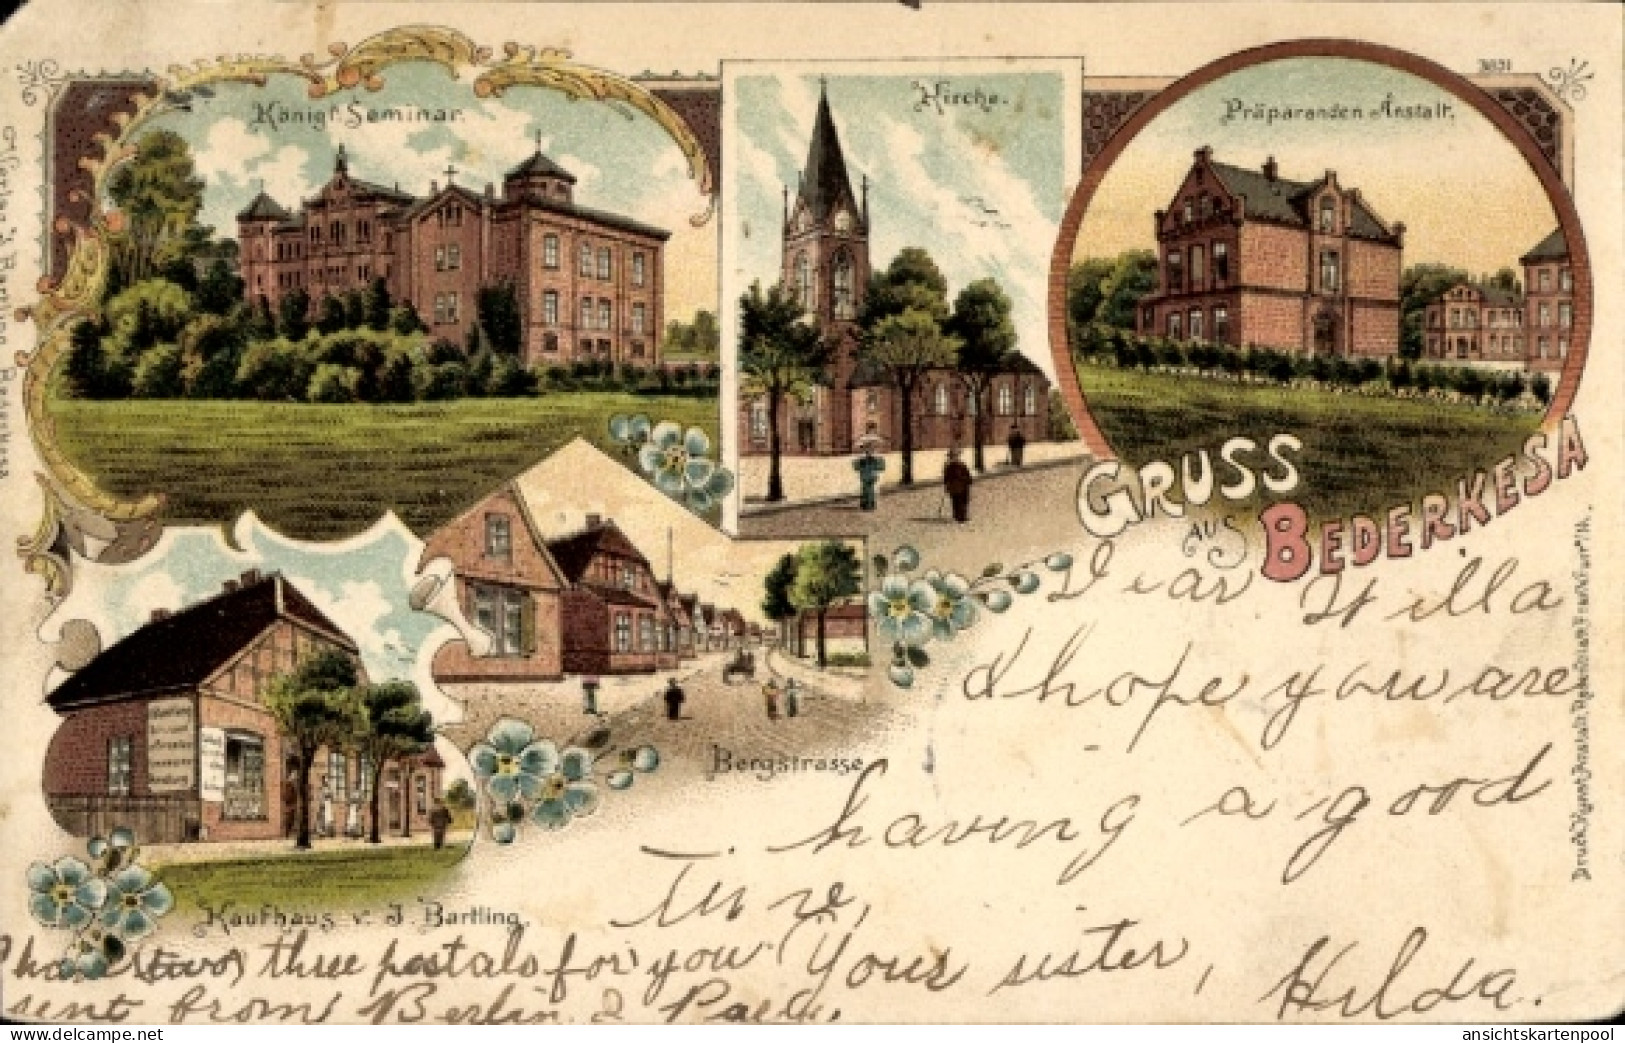 Königl. Seminar.
Kirche.
Präparanden-Anstalt.
3831
GRUSS
AUS BEDERKESA
Bergstrasse
Kaufhaus v. J. Bartling.
Dear Willa
I hope you are
having a good
time,
Your sister,
Hilda.
I have (two) three postals for you
sent from Berlin &
Verlag J. Bartling, Bederkesa
Druck. Kunst Anstalt, Frankfurt a/M.
ansichtskartenpool